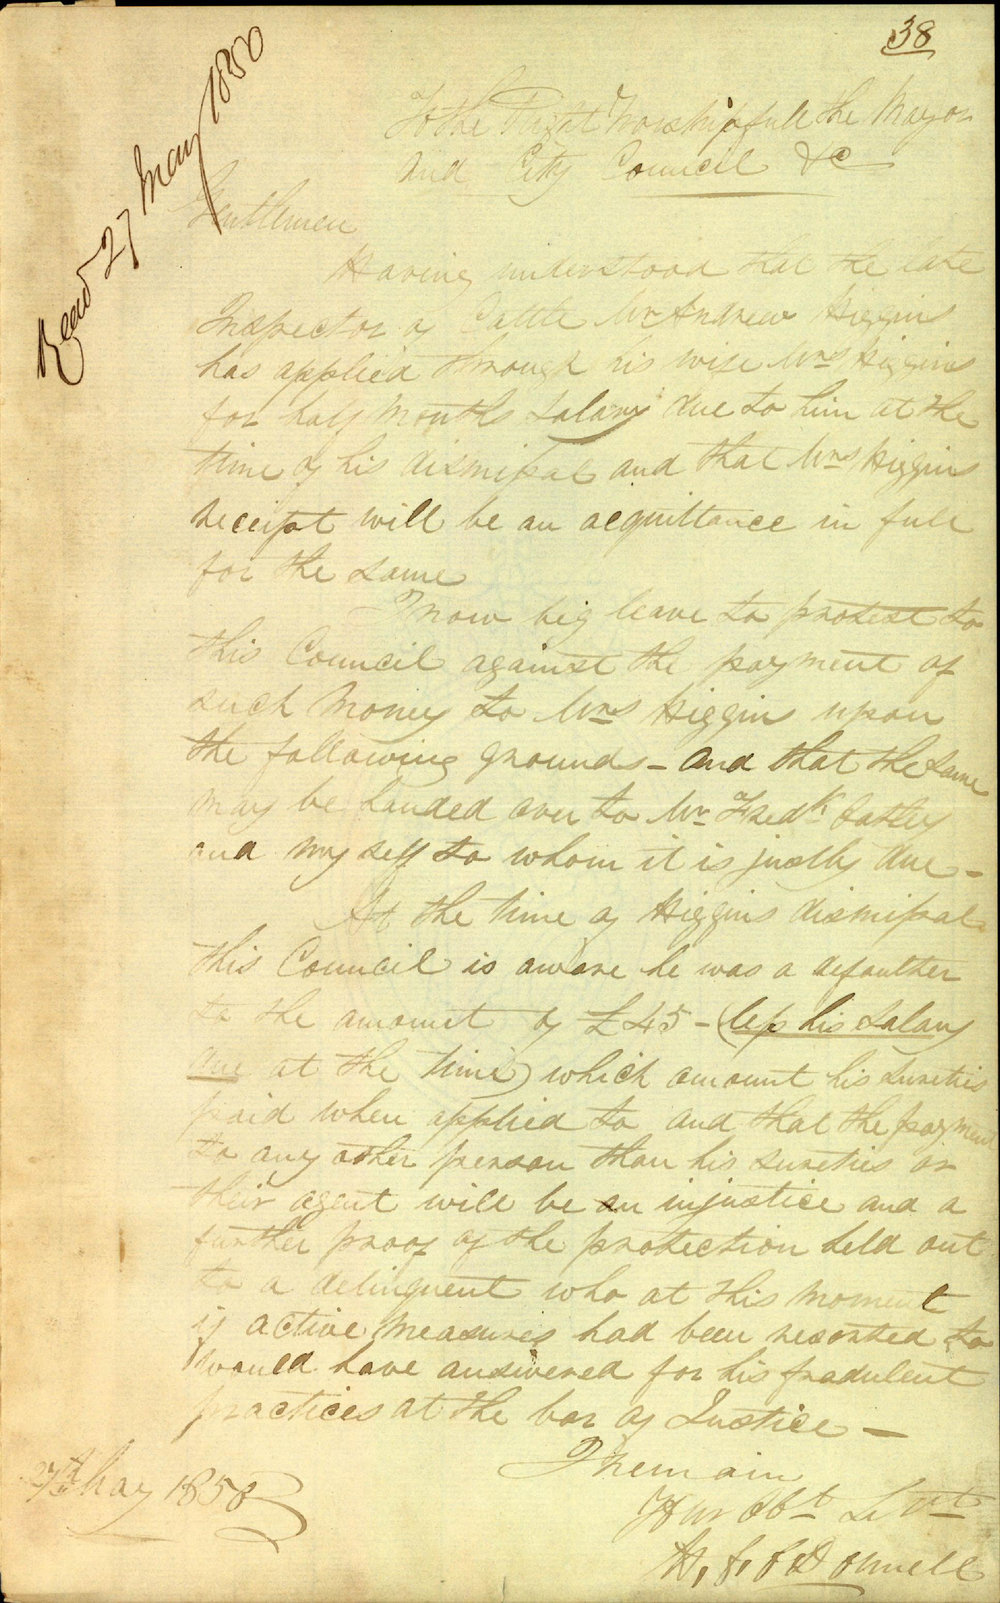 38
Read 27 May 1850
To the Right Worshipfull the Mayor
and City Council &c
Gentlmen
Having understood that the late
Inspector of Cattle Mr Andrew Higgins
has applied through his wife Mrs Higgins
for half months Salary due to him at the
time of his dismissal and that Mrs Higgins
receipt will be an acquittance in full
for the same
I now beg leave to protest to
this Council against the payment of
such Money to Mrs Higgins upon
the following grounds - and that the same
may be handed over to Mr Fredk
and my self to whom it is justly due -
At the time of Higgins dismissal
this Council is aware he was a defaulter
to the amount of £45 - (less his Salary
due at the time) which amount his Sureties
paid when applied to and that the payment
to any other person than his sureties or
their agent will be an injustice and a
further proof of the protection held out
to a delinquent who at this moment
if active Measures had been resorted to
would have answered for his fradulent
practices at the bar of Justice -
I remain
Your Obt Servt
H. J. O'Donnell
27th May 1850